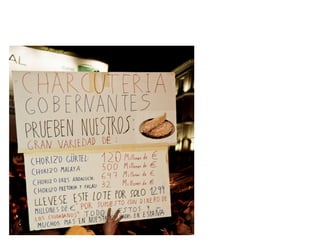 AL
CHARCUTERIA
GOBERNANTES
PRUEBEN NUESTROS:
GRAN VARIEDAD DE:
CHORIZO GÜRTEL: 120 Millones de €
CHORIZO MALAYA: 500 Millones de €
CHORIZO ERES ANDALUCIA: 697 Millones de €
CHORIZO PRETORIA Y PALAU: 32 Millones de €
LLEVESE ESTE LOTE POR SOLO 1299
MILLONES DE €, POR SUPUESTO CON DINERO DE
LOS CIUDADANOS TODO ESTOS Y
MUCHOS MAS EN NUESTRA DE ESPAÑA